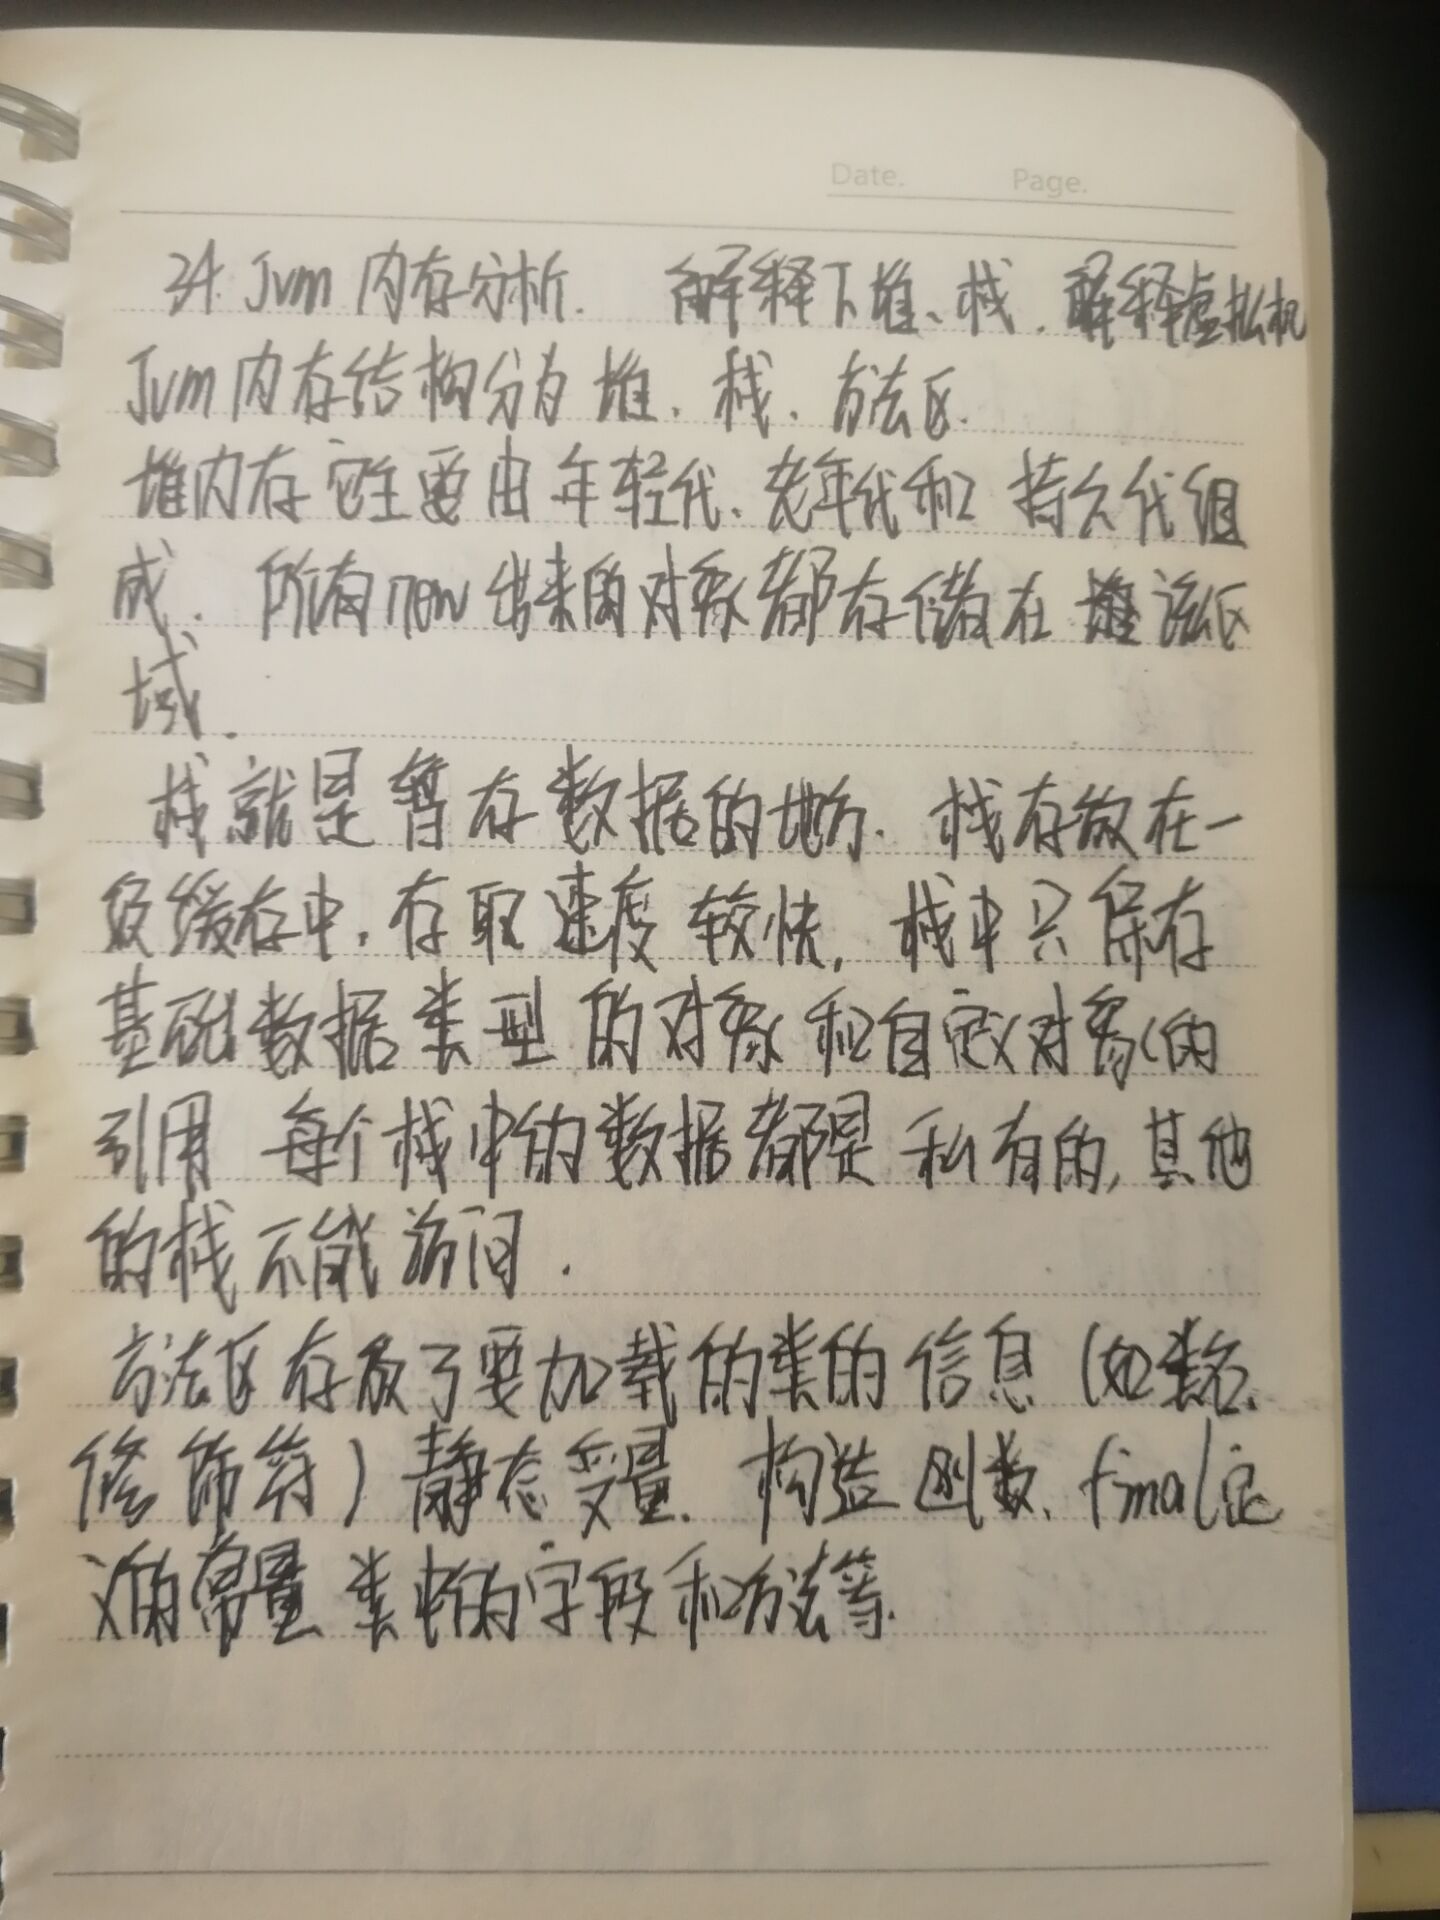 Date. Page.
34. Jvm 内存分析. 解释下堆、栈. 解释虚拟机
Jvm内存结构分为 堆. 栈. 方法区.
堆内存它主要由年轻代、老年代和 持久代组
成. 所有new出来的对象都存储在 该区
域.
栈就是暂存数据的地方. 栈存放在一
级缓存中, 存取速度较快, 栈中只保存
基础数据类型的对象和自定义对象的
引用 每个栈中的数据都是私有的, 其他
的栈不能访问.
方法区存放了要加载的类的信息 (如类名.
修饰符) 静态变量. 构造函数. final定
义的常量 类中的字段和方法等.